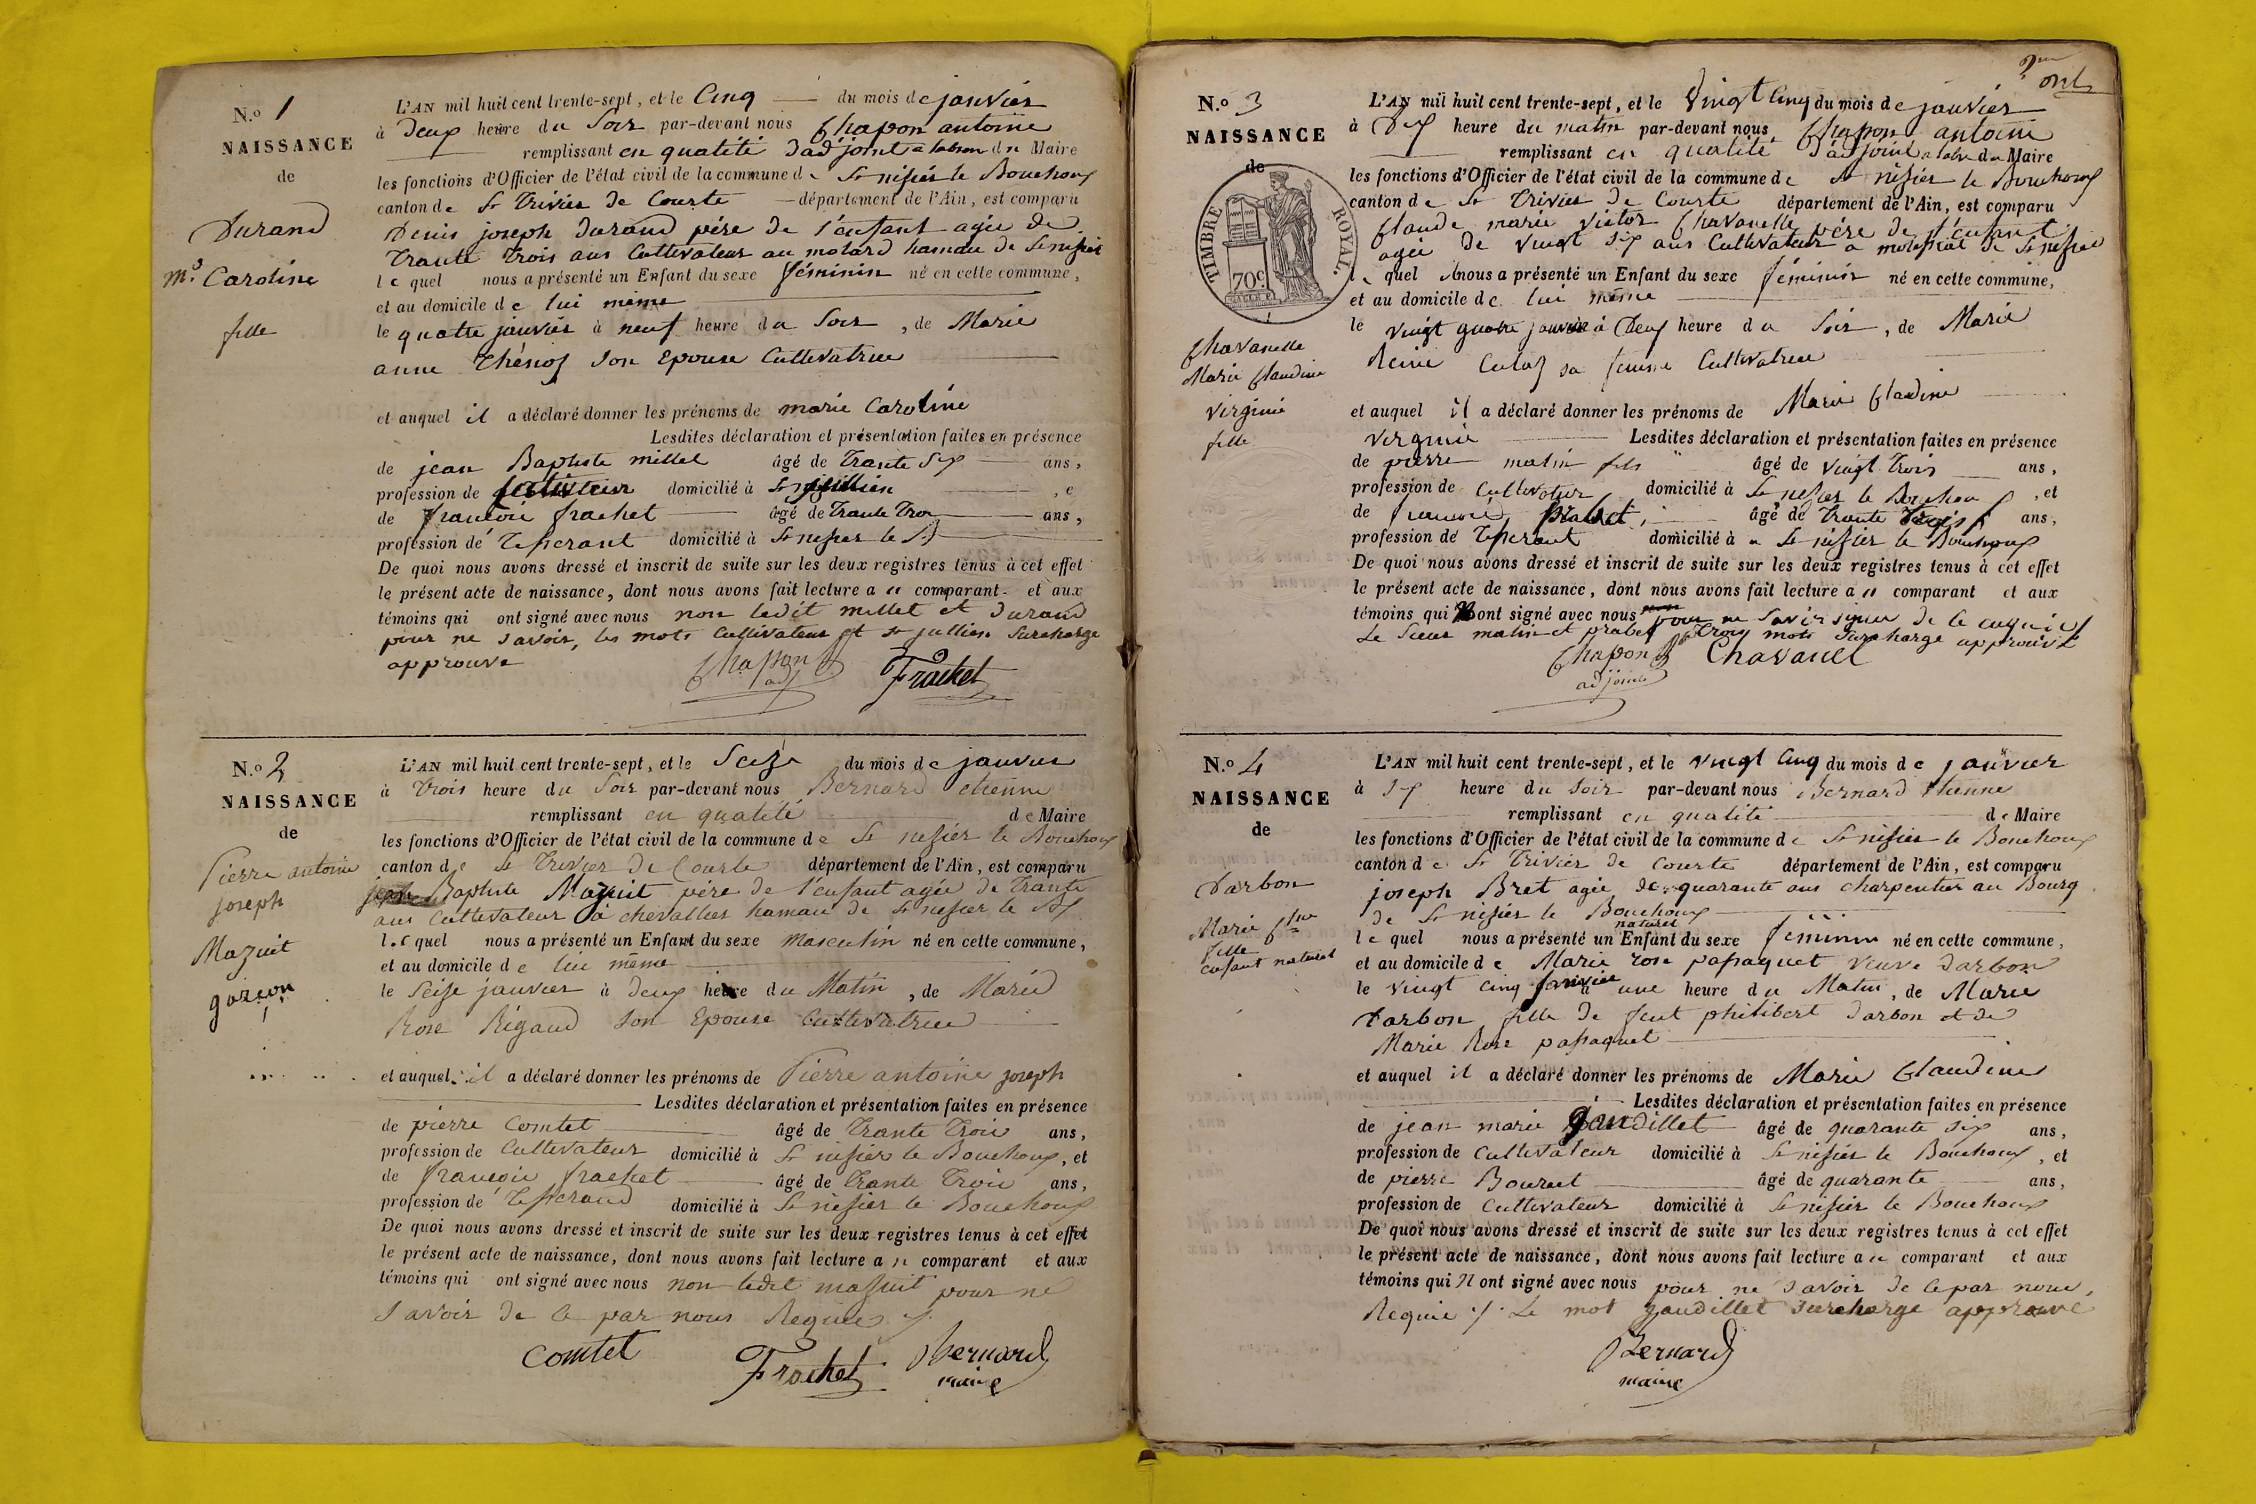 N.o 1
NAISSANCE
de
Durand
Caroline
fille
L'AN mil huit cent trente-sept, et le Cinq du mois de janvier
à deux heure du Soir par-devant nous Chapon antoine
remplissant en qualité d'adjoint du Maire
les fonctions d'Officier de l'état civil de la commune de St nisier le Bouchoux
canton de St Trivier de Courte département de l'Ain, est comparu
Denis joseph durand père de l'enfant agée de
trante trois ans Cultivateur au motard hamau de St nisier
le quel nous a présenté un Enfant du sexe féminin né en cette commune,
et au domicile de lui même
le quatre janvier à neuf heure du Soir, de Marie
anne Thénoz Son Epouse Cultivatrice
et auquel il a déclaré donner les prénoms de marie Caroline
Lesdites déclaration et présentation faites en présence
de jean Baptiste millet âgé de trante Six ans,
profession de Cultivateur domicilié à St jullien, e
de françois frachet âgé de trante trois ans,
profession de Tisserant domicilié à St nisier le Bx
De quoi nous avons dressé et inscrit de suite sur les deux registres tenus à cet effet
le présent acte de naissance, dont nous avons fait lecture au comparant et aux
témoins qui ont signé avec nous non ledit millet et durand
pour ne savoir, les mots Cultivateur et st jullien Surcharge
approuve
Chapon adj Frachet
N.o 2
NAISSANCE
de
Pierre antoine
joseph
Mazuit
garçon
L'AN mil huit cent trente-sept, et le Seize du mois de janvier
à trois heure du Soir par-devant nous Bernard etienne
remplissant en qualité de Maire
les fonctions d'Officier de l'état civil de la commune de St nisier le Bouchoux
canton de St Trivier de Courte département de l'Ain, est comparu
Baptiste Mazuit père de l'enfant agée de trante
ans Cultivateur à chevallier hamau de St nisier le Bx
le quel nous a présenté un Enfant du sexe masculin né en cette commune,
et au domicile de lui même
le Seise janvier à deux heure du Matin, de Marie
Rose Rigaud Son Epouse Cultivatrice
et auquel il a déclaré donner les prénoms de Pierre antoine joseph
Lesdites déclaration et présentation faites en présence
de pierre Comtet âgé de trante trois ans,
profession de Cultivateur domicilié à St nisier le Bouchoux, et
de françois frachet âgé de trante trois ans,
profession de Tisserand domicilié à St nisier le Bouchoux
De quoi nous avons dressé et inscrit de suite sur les deux registres tenus à cet effet
le présent acte de naissance, dont nous avons fait lecture au comparant et aux
témoins qui ont signé avec nous non ledit mazuit pour ne
savoir de ce par nous Requis
Comtet Frachet Bernard
maire
N.o 3
NAISSANCE
de
TIMBRE ROYAL.
70c.
Chavanelle
Marie Claudine
virginie
fille
L'AN mil huit cent trente-sept, et le Vingt Cinq du mois de janvier
à Dix heure du matin par-devant nous Chapon antoine
remplissant en qualité d'adjoint du Maire
les fonctions d'Officier de l'état civil de la commune de St nisier le Bouchoux
canton de St Trivier de Courte département de l'Ain, est comparu
Claude marie victor Chavanelle père de l'enfant
agée de vingt Six ans Cultivateur a St nisier
le quel nous a présenté un Enfant du sexe féminin né en cette commune,
et au domicile de lui même
le vingt quatre janvier à Deux heure du Soir, de Marie
Reine sa femme Cultivatrice
et auquel il a déclaré donner les prénoms de Marie Claudine
virginie Lesdites déclaration et présentation faites en présence
de pierre matin fils âgé de vingt trois ans,
profession de Cultivateur domicilié à St nisier le Bouchoux, et
de françois âgé de trante ans,
profession de Tisserant domicilié à St nisier le Bouchoux
De quoi nous avons dressé et inscrit de suite sur les deux registres tenus à cet effet
le présent acte de naissance, dont nous avons fait lecture au comparant et aux
témoins qui ont signé avec nous pour ne Savoir signer de ce enquis
Le Sieur matin et trois mots Surcharge approuvé
Chapon Chavanel
adjoint
N.o 4
NAISSANCE
de
Darbon
Marie
fille
enfant naturel
L'AN mil huit cent trente-sept, et le vingt Cinq du mois de janvier
à Six heure du Soir par-devant nous Bernard Etienne
remplissant en qualité de Maire
les fonctions d'Officier de l'état civil de la commune de St nisier le Bouchoux
canton de St Trivier de Courte département de l'Ain, est comparu
joseph Bret agée de quarante ans charpentier au Bourg
de St nisier le Bouchoux
naturel
le quel nous a présenté un Enfant du sexe féminin né en cette commune,
et au domicile de Marie rose passaquet veuve darbon
le vingt cinq janvier à une heure du Matin, de Marie
Darbon fille de feut philibert darbon et de
Marie Rose passaquet
et auquel il a déclaré donner les prénoms de Marie Claudine
Lesdites déclaration et présentation faites en présence
de jean marie gaudillet âgé de quarante Six ans,
profession de Cultivateur domicilié à St nisier le Bouchoux, et
de pierre Bourcet âgé de quarante ans,
profession de Cultivateur domicilié à St nisier le Bouchoux
De quoi nous avons dressé et inscrit de suite sur les deux registres tenus à cet effet
le présent acte de naissance, dont nous avons fait lecture au comparant et aux
témoins qui N ont signé avec nous pour ne savoir de ce par nous
Requis Le mot gaudillet Surcharge approuvé
Bernard
maire